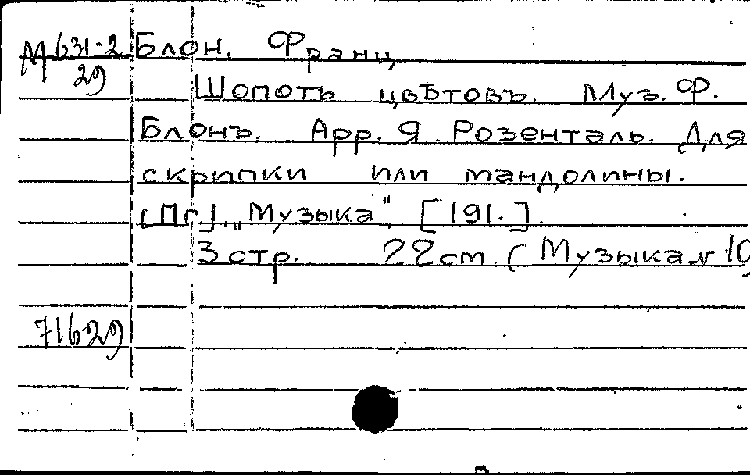 М 631-2 Блон, Франц
29
Шопотъ цвѣтовъ. Муз. Ф.
Блонъ. Арр. Я. Розенталь. Для
скрипки или мандолины.
[Пг], "Музыка", [191.]
3 стр. 22 см. (Музыка №10
71629